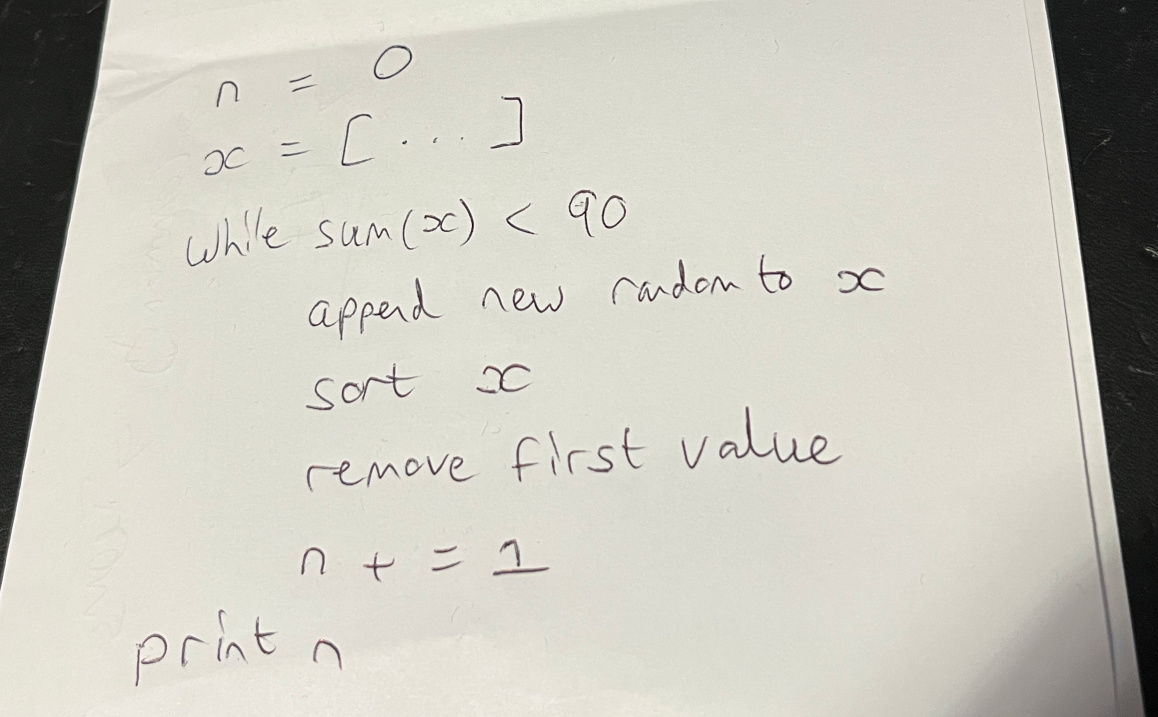 n = 0
x = [...]
while sum(x) < 90
append new random to x
sort x
remove first value
n += 1
print n